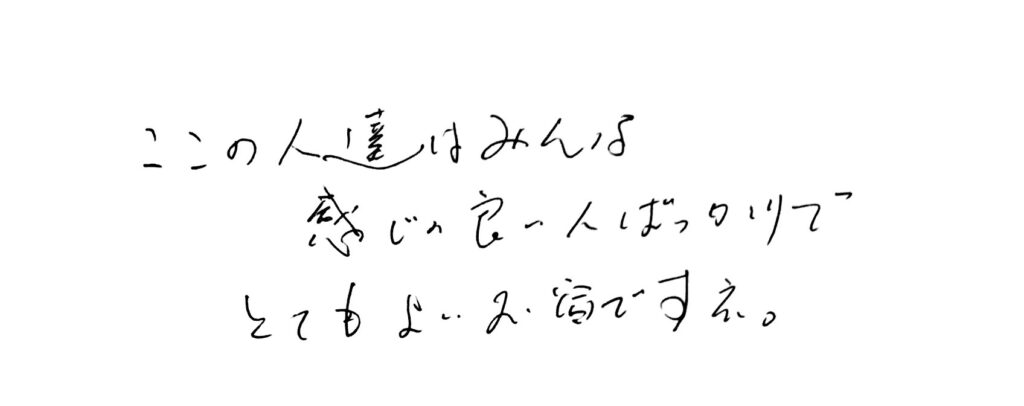 ここの人達はみんな
感じの良い人ばっかりで
とてもよいお宿ですネ。